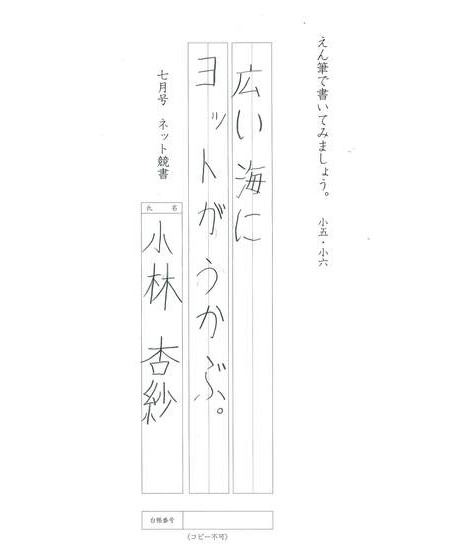 えん筆で書いてみましょう。
小五・小六
広い海に
ヨットがうかぶ。
七月号 ネット競書
氏名
小林 杏紗
台帳番号
(コピー不可)